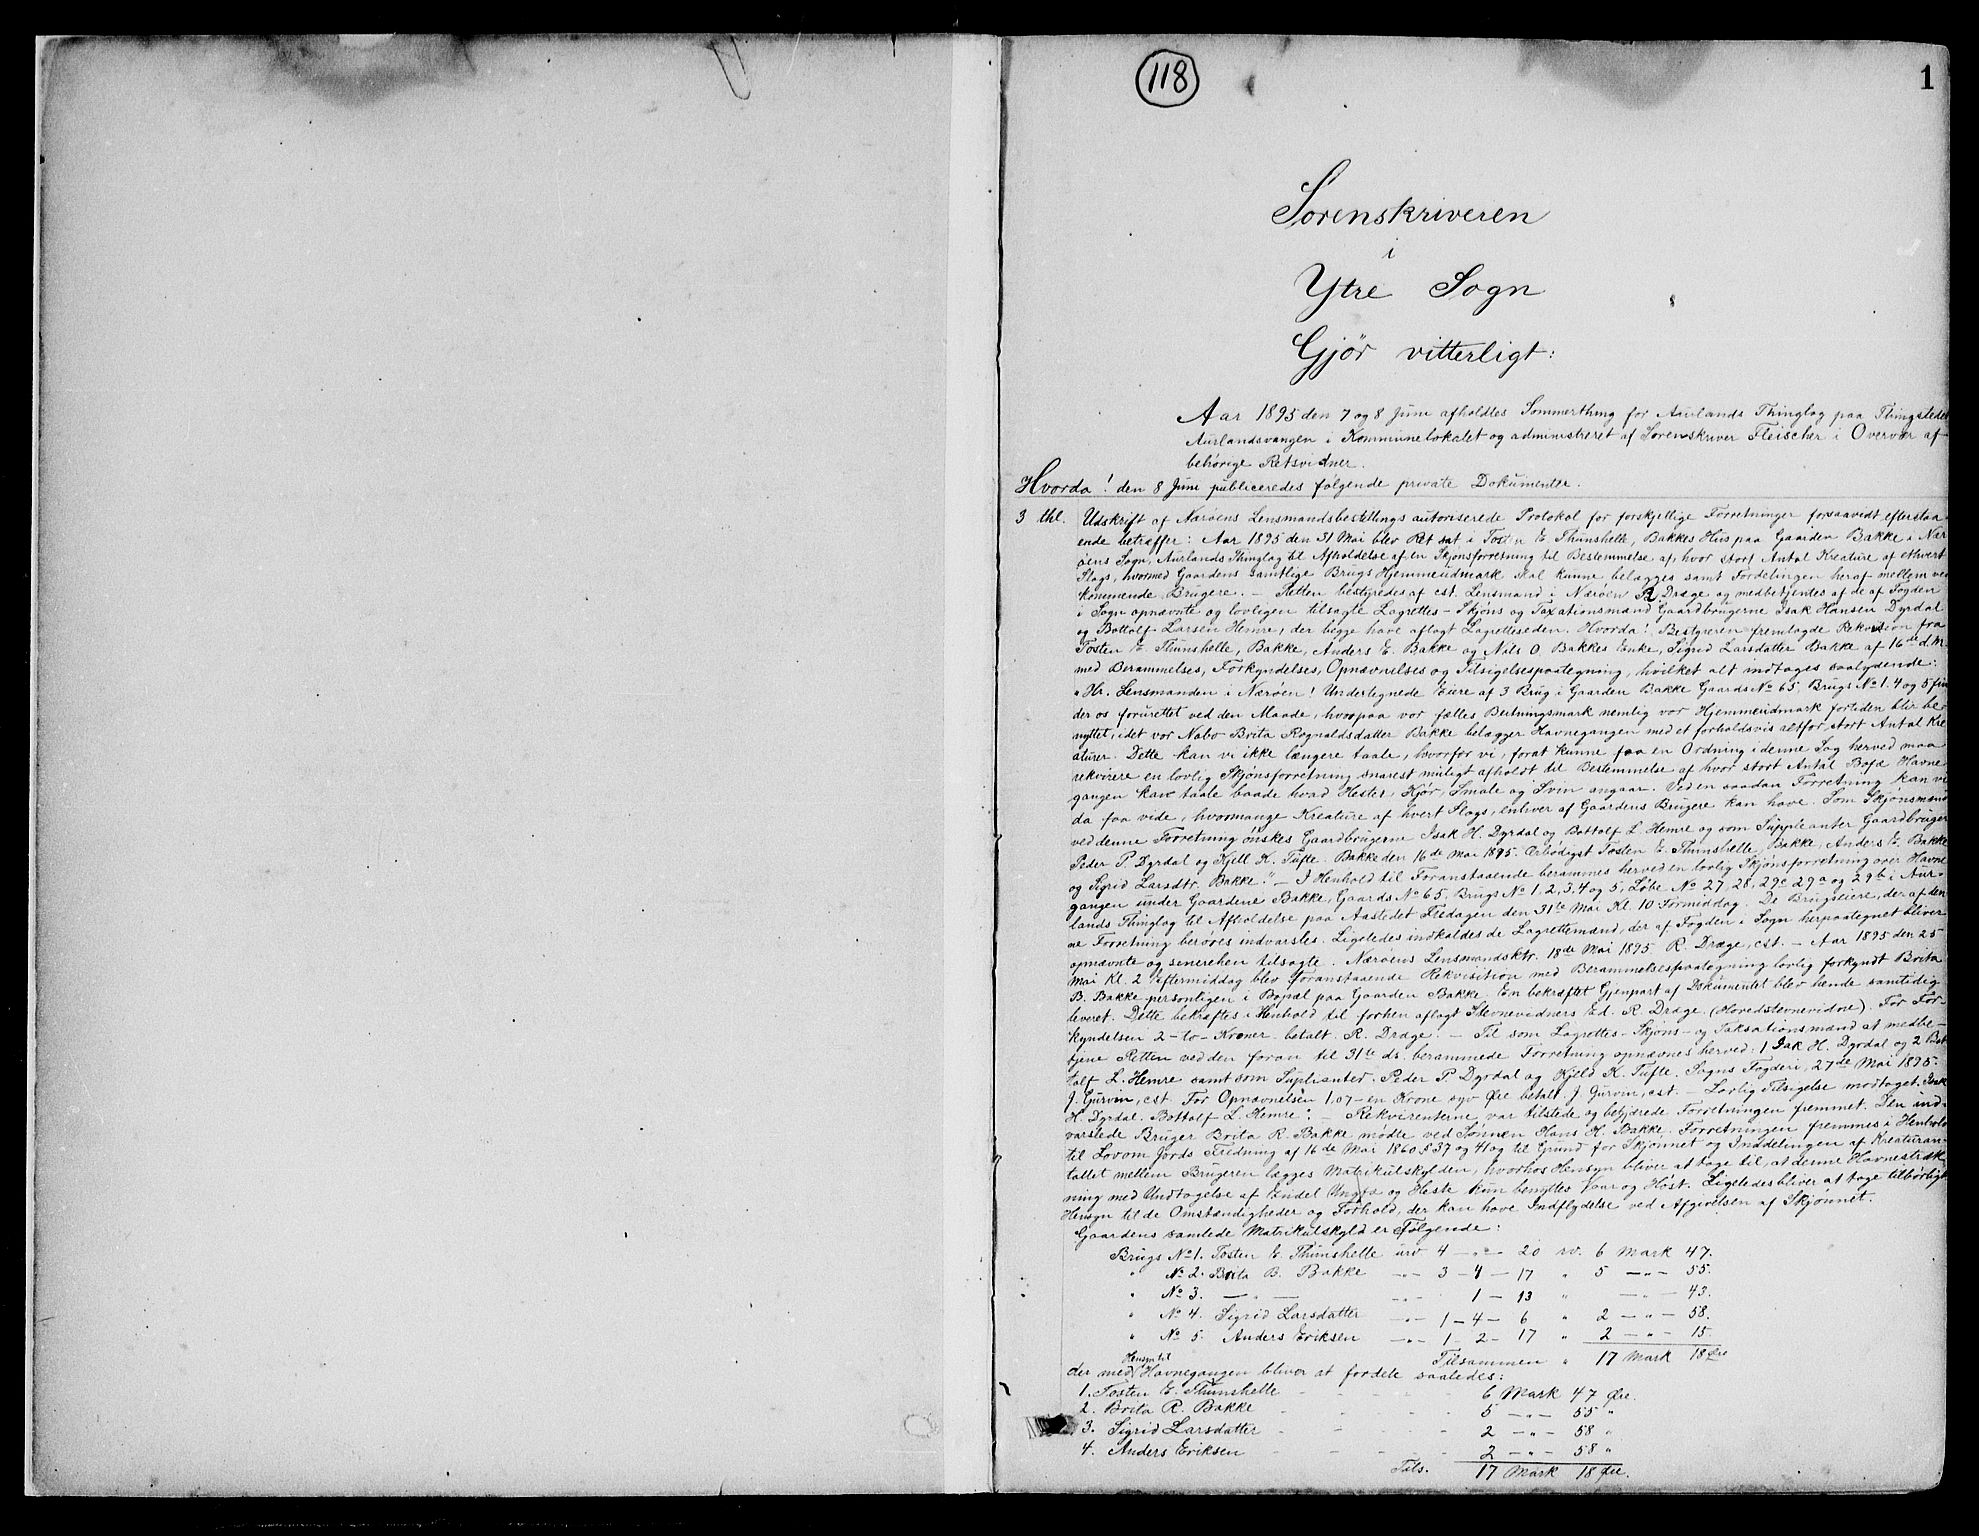 118
1
Sorenskriveren
i
Ytre Sogn
Gjör vitterligt:
Aar 1895 den 7 og 8 Juni afholdtes Sommerthing for Aurlands Thinglag paa Thingstedet
Aurlandsvangen i Kommunelokalet og administreret af Sorenskriver Fleischer i Overvær af
behörige Retsvidner.
Hvorda! den 8 Juni publiceredes følgende private Dokumenter.
3 thl. Udskrift af Nærøens Lensmandsbestillings autoriserede Protokol for forskjellige Forretninger forsaavidt efterstaa-
ende betræffer: Aar 1895 den 31 Mai blev Ret sat i Tosten E. Thunshelle, Bakkes Hus paa Gaarden Bakke i Nær
øens Sogn, Aurlands Thinglag til Afholdelse af en Skjønsforretning til Bestemmelse af, hvor stort Antal Kreature af ethvert
Slags, hvormed Gaardens samtlige Brugs Hjemmeudmark skal kunne belægges samt Fordelingen heraf mellem ved
kommende Brugere. – Retten bestyredes af cst. Lensmand i Nærøen R. Dræge og medbetjentes af de af Fogden
i Sogn opnævnte og lovligen tilsagte Lagrettes- Skjøns og Taxationsmænd Gaardbrugerne Isak Hansen Dyrdal
og Bottolf Larsen Hemre, der begge have aflagt Lagretteseden. Hvorda! Bestyreren fremlagde Rekvisition fra
Tosten E. Thunshelle, Bakke, Anders E. Bakke og Nils O. Bakkes Enke, Sigrid Larsdatter Bakke af 16de d.M.
med Berammelses, Forkyndelses, Opnævnelses og Tilsigelsespaategning, hvilket alt indtages saalydende:
"Hr. Lensmanden i Nærøen! Undertegnede Eiere af 3 Brug i Gaarden Bakke Gaards No 65, Brugs No 1. 4 og 5 fin
der os forurettet ved den Maade, hvorpaa vor fælles Beitningsmark nemlig vor Hjemmeudmark fortiden blir be
nyttet, idet vor Nabo Brita Rognaldsdatter Bakke belægger Havnegangen med et forholdsvis altfor stort Antal Kre
aturer. Dette kan vi ikke længere taale, hvorfor vi, forat kunne faa en Ordning i denne Sag herved maa
rekvirere en lovlig Skjønsforretning snarest muligt afholdt til Bestemmelse af hvor stort Antal Bofæ Havne
gangen kan taale baade hvad Hester, Kjør, Smale og Svin angaar. Ved en saadan Forretning kan vi
da faa vide, hvormange Kreature af hvert Slags, enhver af Gaardens Brugere kan have. Som Skjønsmænd
ved denne Forretning ønskes Gaardbrugerne Isak H. Dyrdal og Bottolf L. Hemre og som Suppleanter Gaardbruger
Peder P. Dyrdal og Kjell K. Tufte. Bakke den 16de Mai 1895. Ærbödigst Tosten E. Thunshelle, Bakke, Anders E. Bakke
og Sigrid Larsdtr. Bakke." – I Henhold til Foranstaaende berammes herved en lovlig Skjønsforretning over Havne
gangen under Gaardene Bakke, Gaards No 65. Brugs No 1, 2, 3, 4 og 5, Løbe No 27, 28, 29c 29a og 29b i Aur-
lands Thinglag til Afholdelse paa Aastedet Fredagen den 31te Mai Kl. 10 Formiddag. De Brugseiere, der af den
ne Forretning berøres indvarsles. Ligeledes indkaldes de Lagrettemænd, der af Fogden i Sogn herpaategnet bliver
opnævnte og senerehen tilsagte. Nærøens Lensmandsktr. 18de Mai 1895 R. Dræge, cst. – Aar 1895 den 25
Mai Kl. 2 Eftermiddag blev foranstaaende Rekvisition med Berammelsespaategning lovlig forkyndt Brita
B. Bakke personligen i Bopæl paa Gaarden Bakke. En bekræftet Gjenpart af Dokumentet blev hende samtidig
leveret. Dette bekræftes i Henhold til forhen aflagt Stevnevidners Ed. R. Dræge. (Hovedstevnevidne). For For-
kyndelsen 2 – to – Kroner betalt. R. Dræge. – Til som Lagrettes- Skjøns- og Taksationsmænd at medbe-
tjene Retten ved den foran til 31te ds. berammede Forretning opnævnes herved: 1 Isak H. Dyrdal og 2 Bot
tolf L. Hemre samt som Suplianter: Peder P. Dyrdal og Kjeld K. Tufte. Sogns Fogderi, 27de Mai 1895.
J. Gurvin, cst. For Opnævnelsen 1,07 – en Krone syv Øre betalt. J. Gurvin, cst. – Lovlig Tilsigelse modtaget. Isak
H. Dyrdal. Bottolf L. Hemre". – Rekvirenterne var tilstede og begjærede Forretningen fremmet. Den ind-
varslede Bruger Brita R. Bakke mødte ved Sønnen Hans H. Bakke. Forretningen fremmes i Henhold
til Lov om Jords Fredning af 16de Mai 1860 § 37 og 41 og til Grund for Skjønnet og Inddelingen af Kreaturan-
tallet mellem Brugeren lægges Matrikulskylden, hvorhos Hensyn bliver at tage til, at denne Havnestræk
ning med Undtagelse af Endel Ungfæ og Heste kun benyttes Vaar og Høst. Ligeledes bliver at tage tilbørligt
Hensyn til de Omstændigheder og Forhold, der kan have Indflydelse ved Afgivelsen af Skjønnet.
Gaardens samlede Matrikulskyld er Følgende:
Brugs No 1. Tosten E. Thunshelle urv 4 – " – 20 rv. 6 Mark 47.
" No 2. Brita B. Bakke –"– 3 – 4 – 17 " 5 –"– 55.
" No 3. –"– –"– 1 – 13 " –"– 43.
" No 4. Sigrid Larsdatter –"– 1 – 4 – 6 " 2 –"– 58.
" No 5. Anders Eriksen –"– 1 – 2 – 17 " 2 –"– 15
Tilsammen " 17 Mark 18 Øre
der med Hensyn til Havnegangen bliver at fordele saaledes:
1. Tosten E. Thunshelle 6 Mark 47 Øre.
2. Brita R. Bakke 5 –"– 55 "
3. Sigrid Larsdatter 2 –"– 58 "
4. Anders Eriksen 2 –"– 58 "
Tils. 17 Mark 18 Øre.